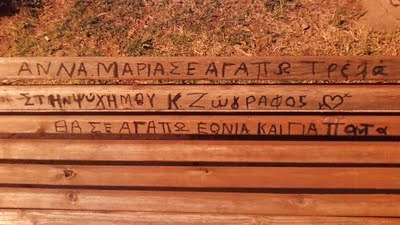 ΑΝΝΑ ΜΑΡΙΑ ΣΕ ΑΓΑΠΩ Τρελά
ΣΤΗΝ ΨΥΧΗ ΜΟΥ Κ Ζωγραφος
ΘΑ ΣΕ ΑΓΑΠΩ ΕΟΝΙΑ ΚΑΙ ΓΙΑ Παντα